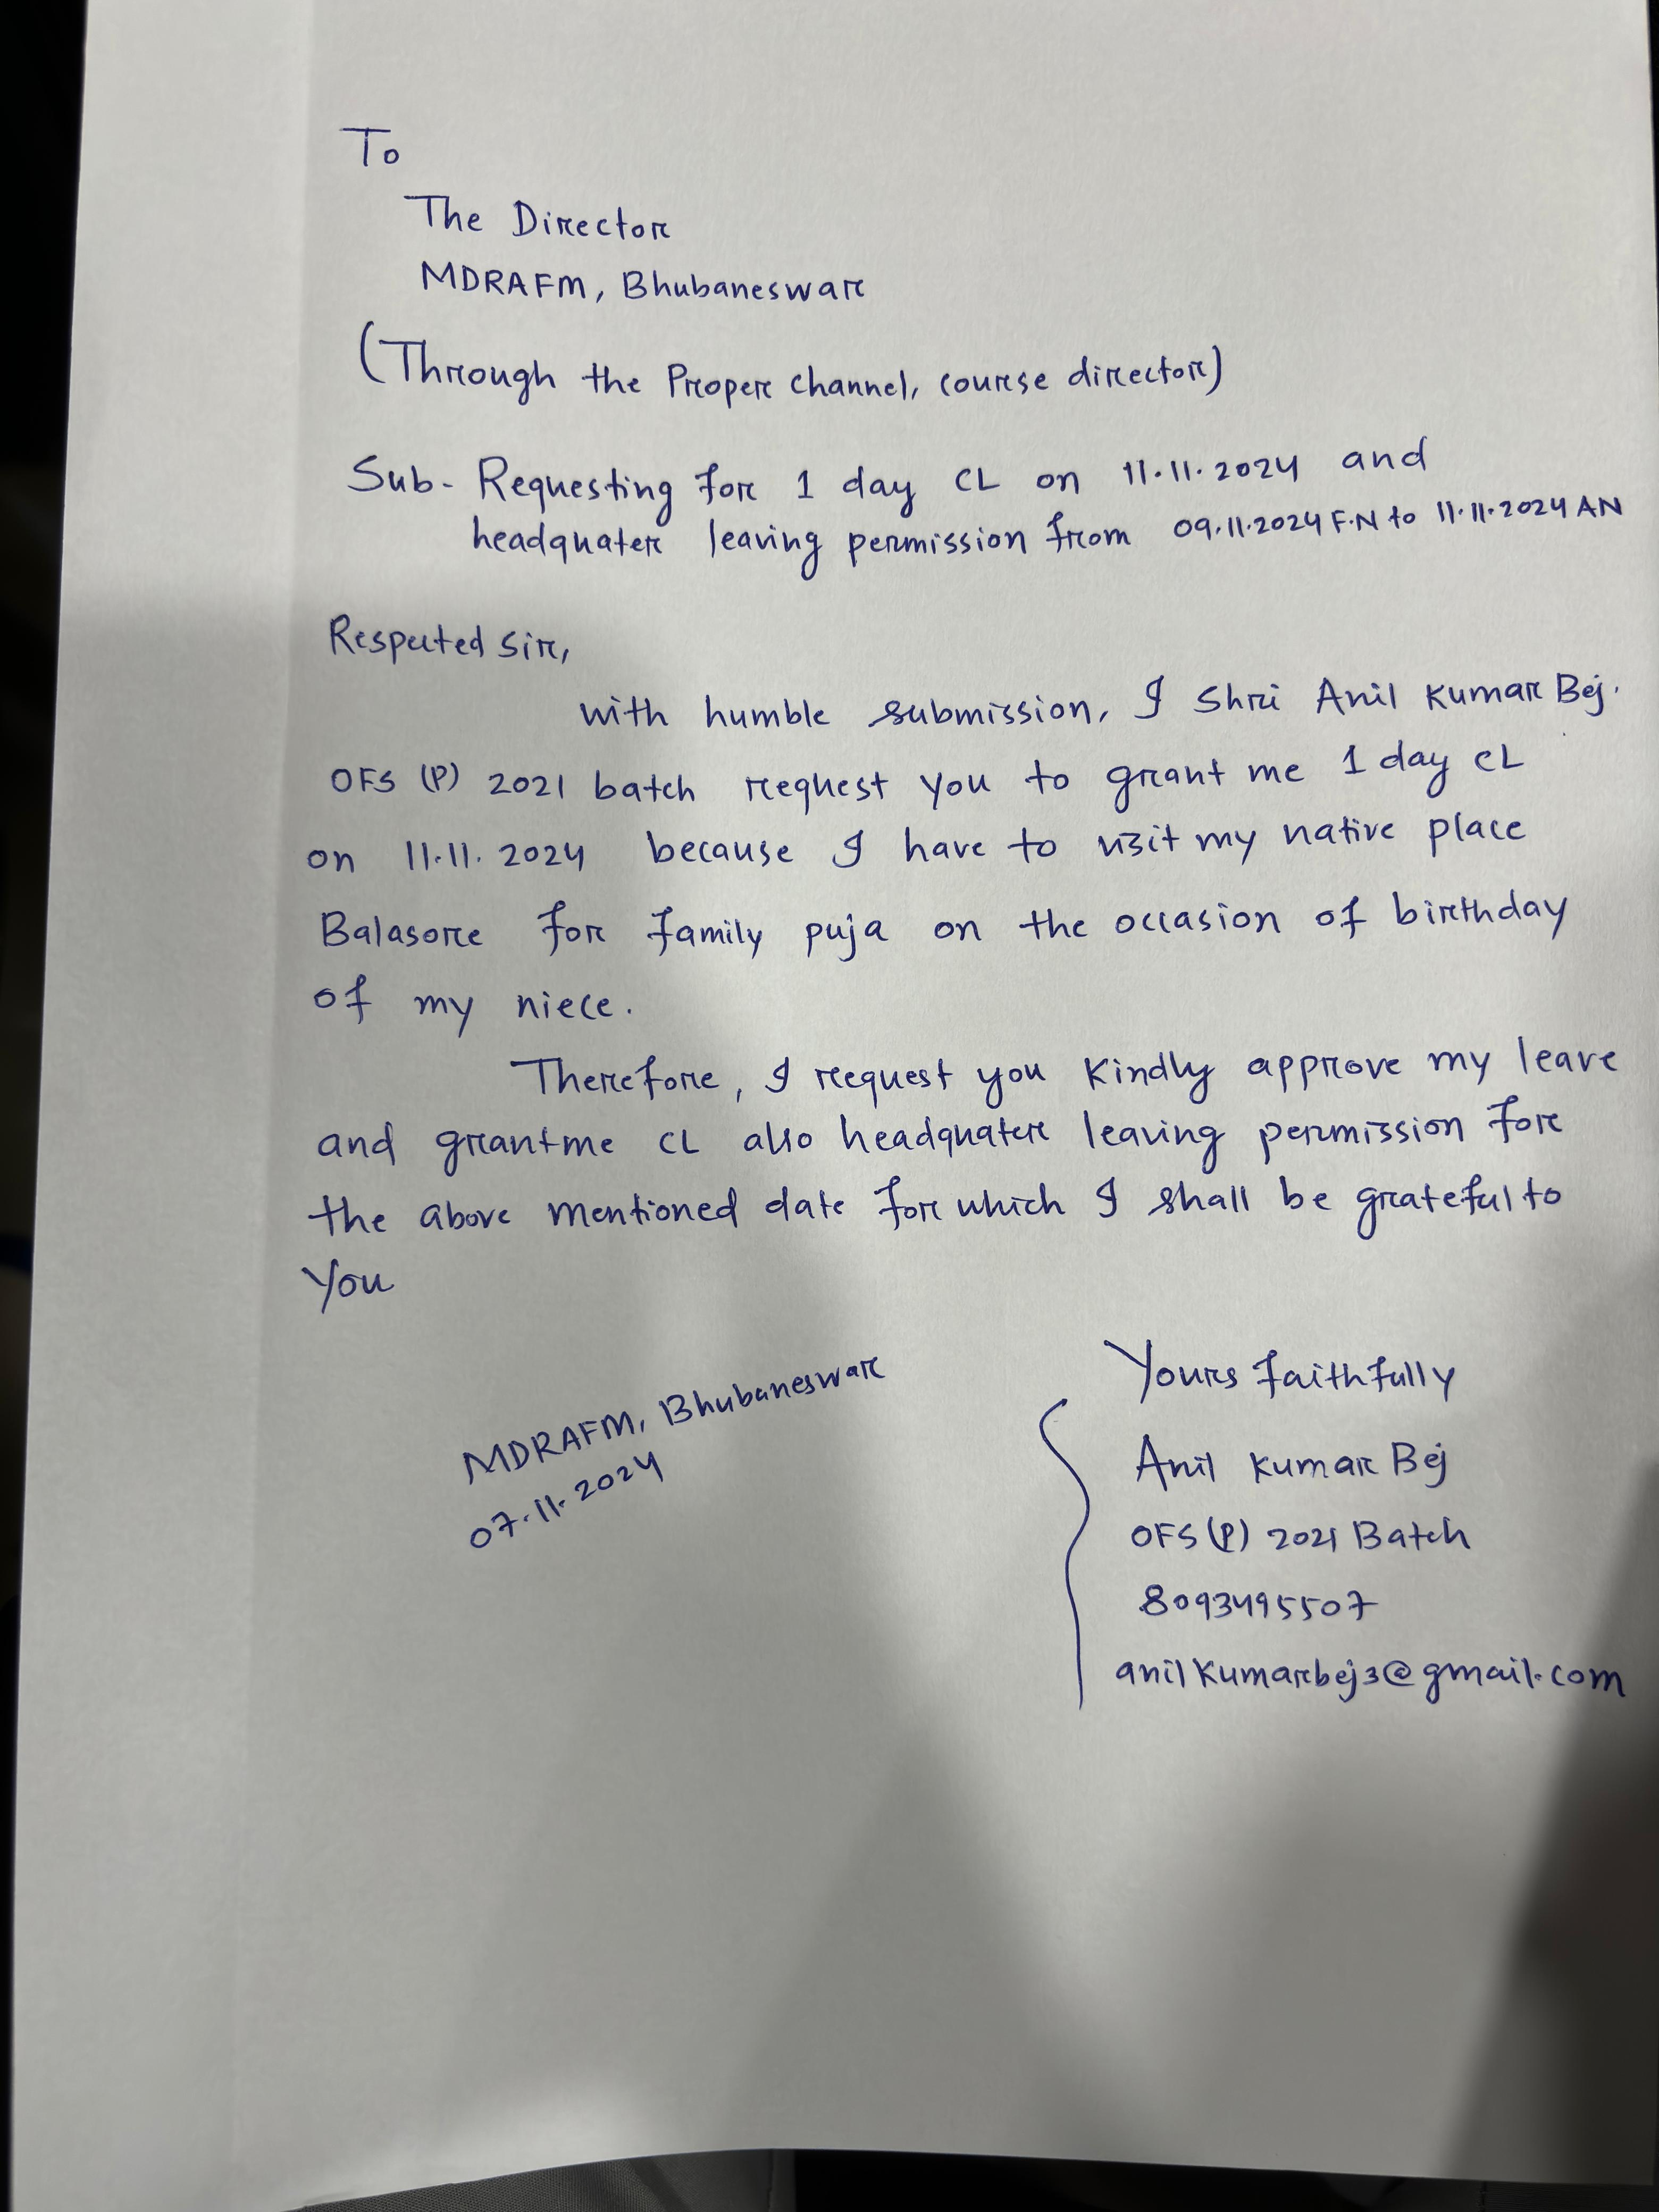 To
The Director
MDRAFM, Bhubaneswar
(Through the Proper channel, course director)
Sub- Requesting for 1 day CL on 11.11.2024 and
headquater leaving permission from 09.11.2024 F.N to 11.11.2024 AN
Respected Sir,
with humble submission, I Shri Anil Kumar Bej.
OFS (P) 2021 batch request you to grant me 1 day CL
on 11.11.2024 because I have to visit my native place
Balasore for family puja on the occasion of birthday
of my niece.
Therefore, I request you kindly approve my leave
and grant me CL also headquater leaving permission for
the above mentioned date for which I shall be grateful to
You
MDRAFM, Bhubaneswar
07.11.2024
Yours faithfully
Anil Kumar Bej
OFS (P) 2021 Batch
8093495507
anilkumarbej3@gmail.com